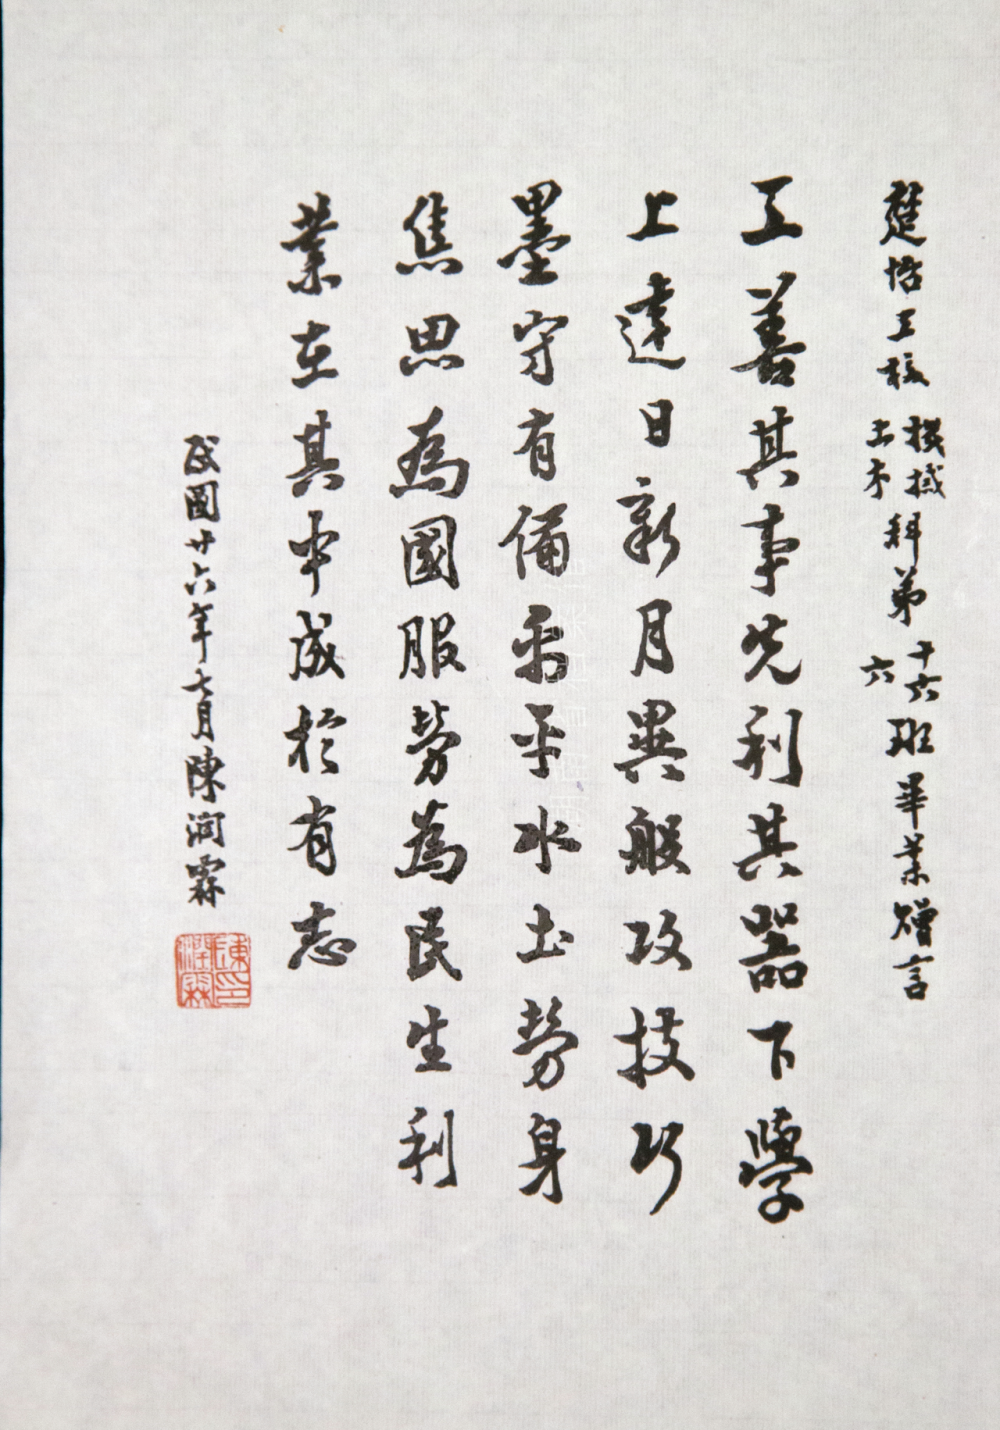 楚怡工校機械土木科弟十六六班畢業贈言
工善其事先利其器下學
上達日新月異般攻技巧
墨守有備禹平水土勞身
焦思為國服勞為民生利
業在其中成於有志
民國廿六年七月陳潤霖
陳印潤霖